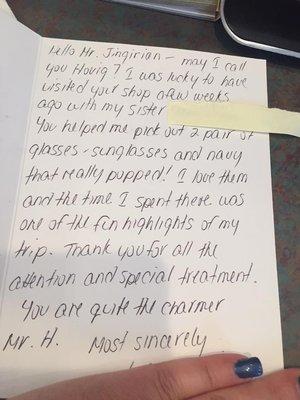 Hello Mr. Jingirian - may I call
you Hovig? I was lucky to have
visited your shop a few weeks
ago with my sister
You helped me pick out 2 pair of
glasses - sunglasses and navy
that really popped! I love them
and the time I spent there was
one of the fun highlights of my
trip. Thank you for all the
attention and special treatment.
You are quite the charmer
Mr. H. Most sincerely